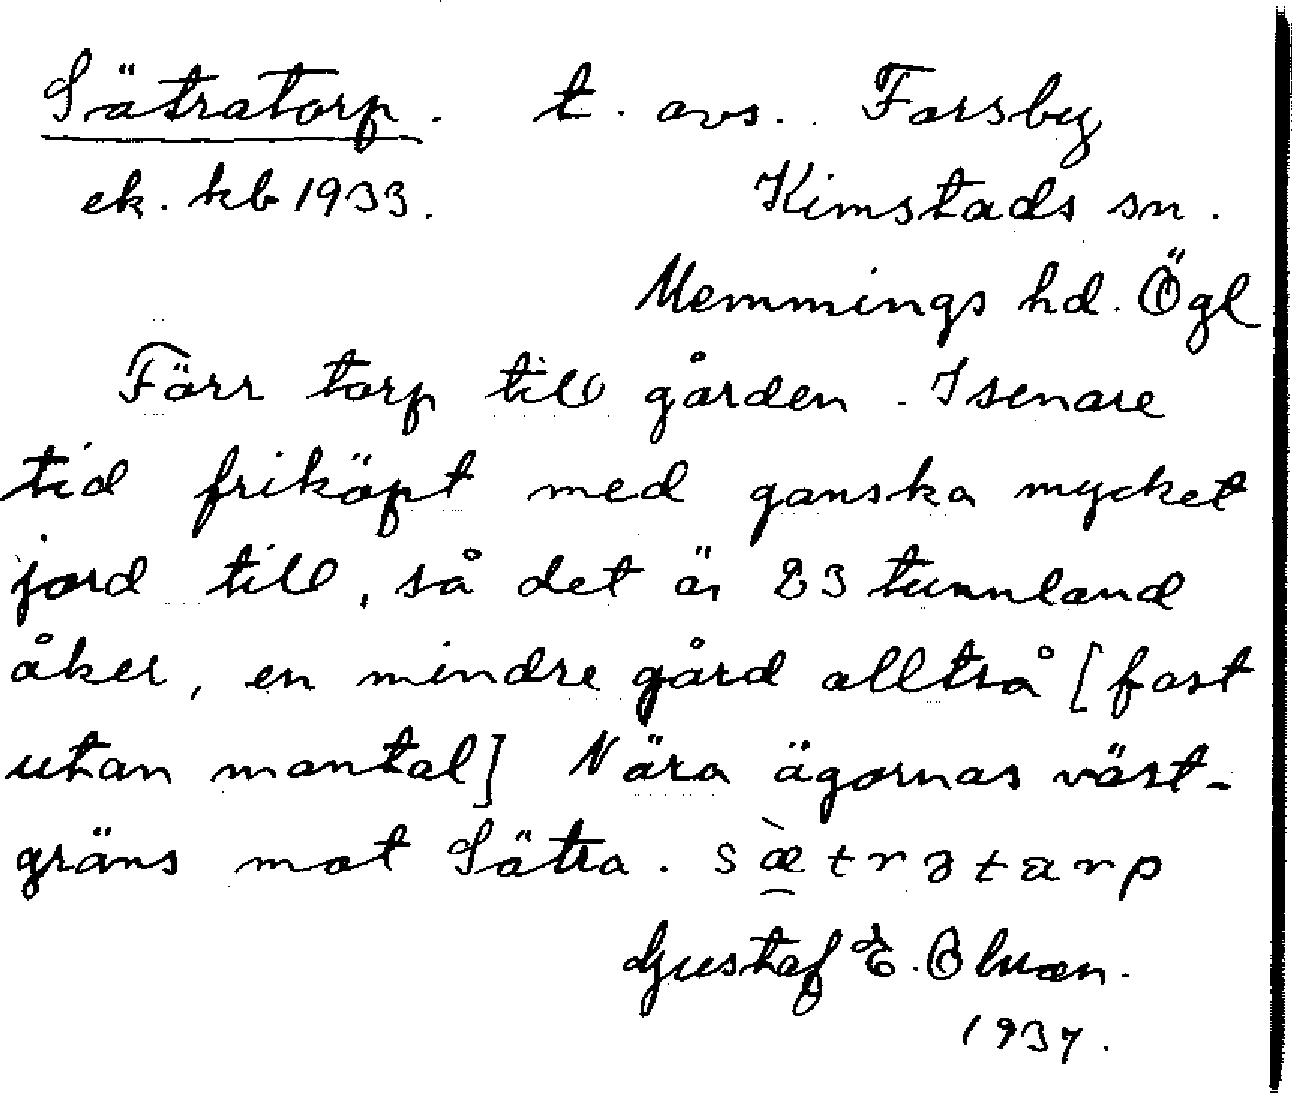 Sätratorp. t. avs. Forsby
ek. kb 1933. Kimstads sn.
Memmings hd. Ögl
Förr torp till gården. I senare
tid friköpt med ganska mycket
jord till, så det är 83 tunnland
åker, en mindre gård alltså [fast
utan mantal] Nära ägornas väst-
gräns mot Sätra.
Gustaf E.
1937.